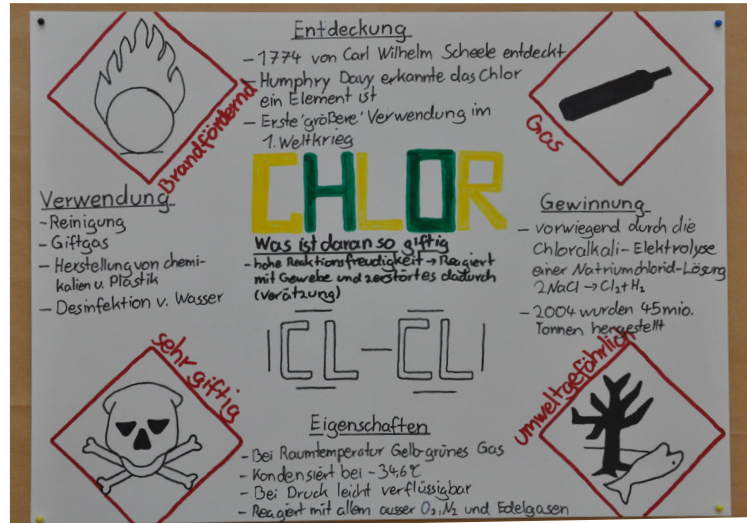 Entdeckung
- 1774 von Carl Wilhelm Scheele entdeckt
- Humphry Davy erkannte das Chlor
ein Element ist
- Erste 'größere' Verwendung im
1. Weltkrieg
Brandfördernd
Gas
CHLOR
Verwendung
- Reinigung
- Giftgas
- Herstellung von chemi-
kalien u. Plastik
- Desinfektion v. Wasser
Was ist daran so giftig
- hohe Reaktionsfreudigkeit → Reagiert
mit Gewebe und zerstört es dadurch
(Verätzung)
Gewinnung
- vorwiegend durch die
Chloralkali-Elektrolyse
einer Natriumchlorid-Lösung
2NaCl → Cl₂ + H₂
- 2004 wurden 45 mio.
Tonnen hergestellt
|CL-CL|
sehr giftig
umweltgefährlich
Eigenschaften
- Bei Raumtemperatur Gelb-grünes Gas
- Kondensiert bei -34,6°C
- Bei Druck leicht verflüssigbar
- Reagiert mit allem ausser O₂, N₂ und Edelgasen